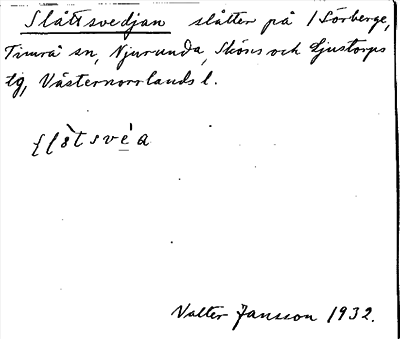 Slåttsvedjan slåtter på /Sörberge,
Timrå sn, Njurunda, Sköns och Ljustorps
tg, Västernorrlands l.
Valter Jansson 1932.